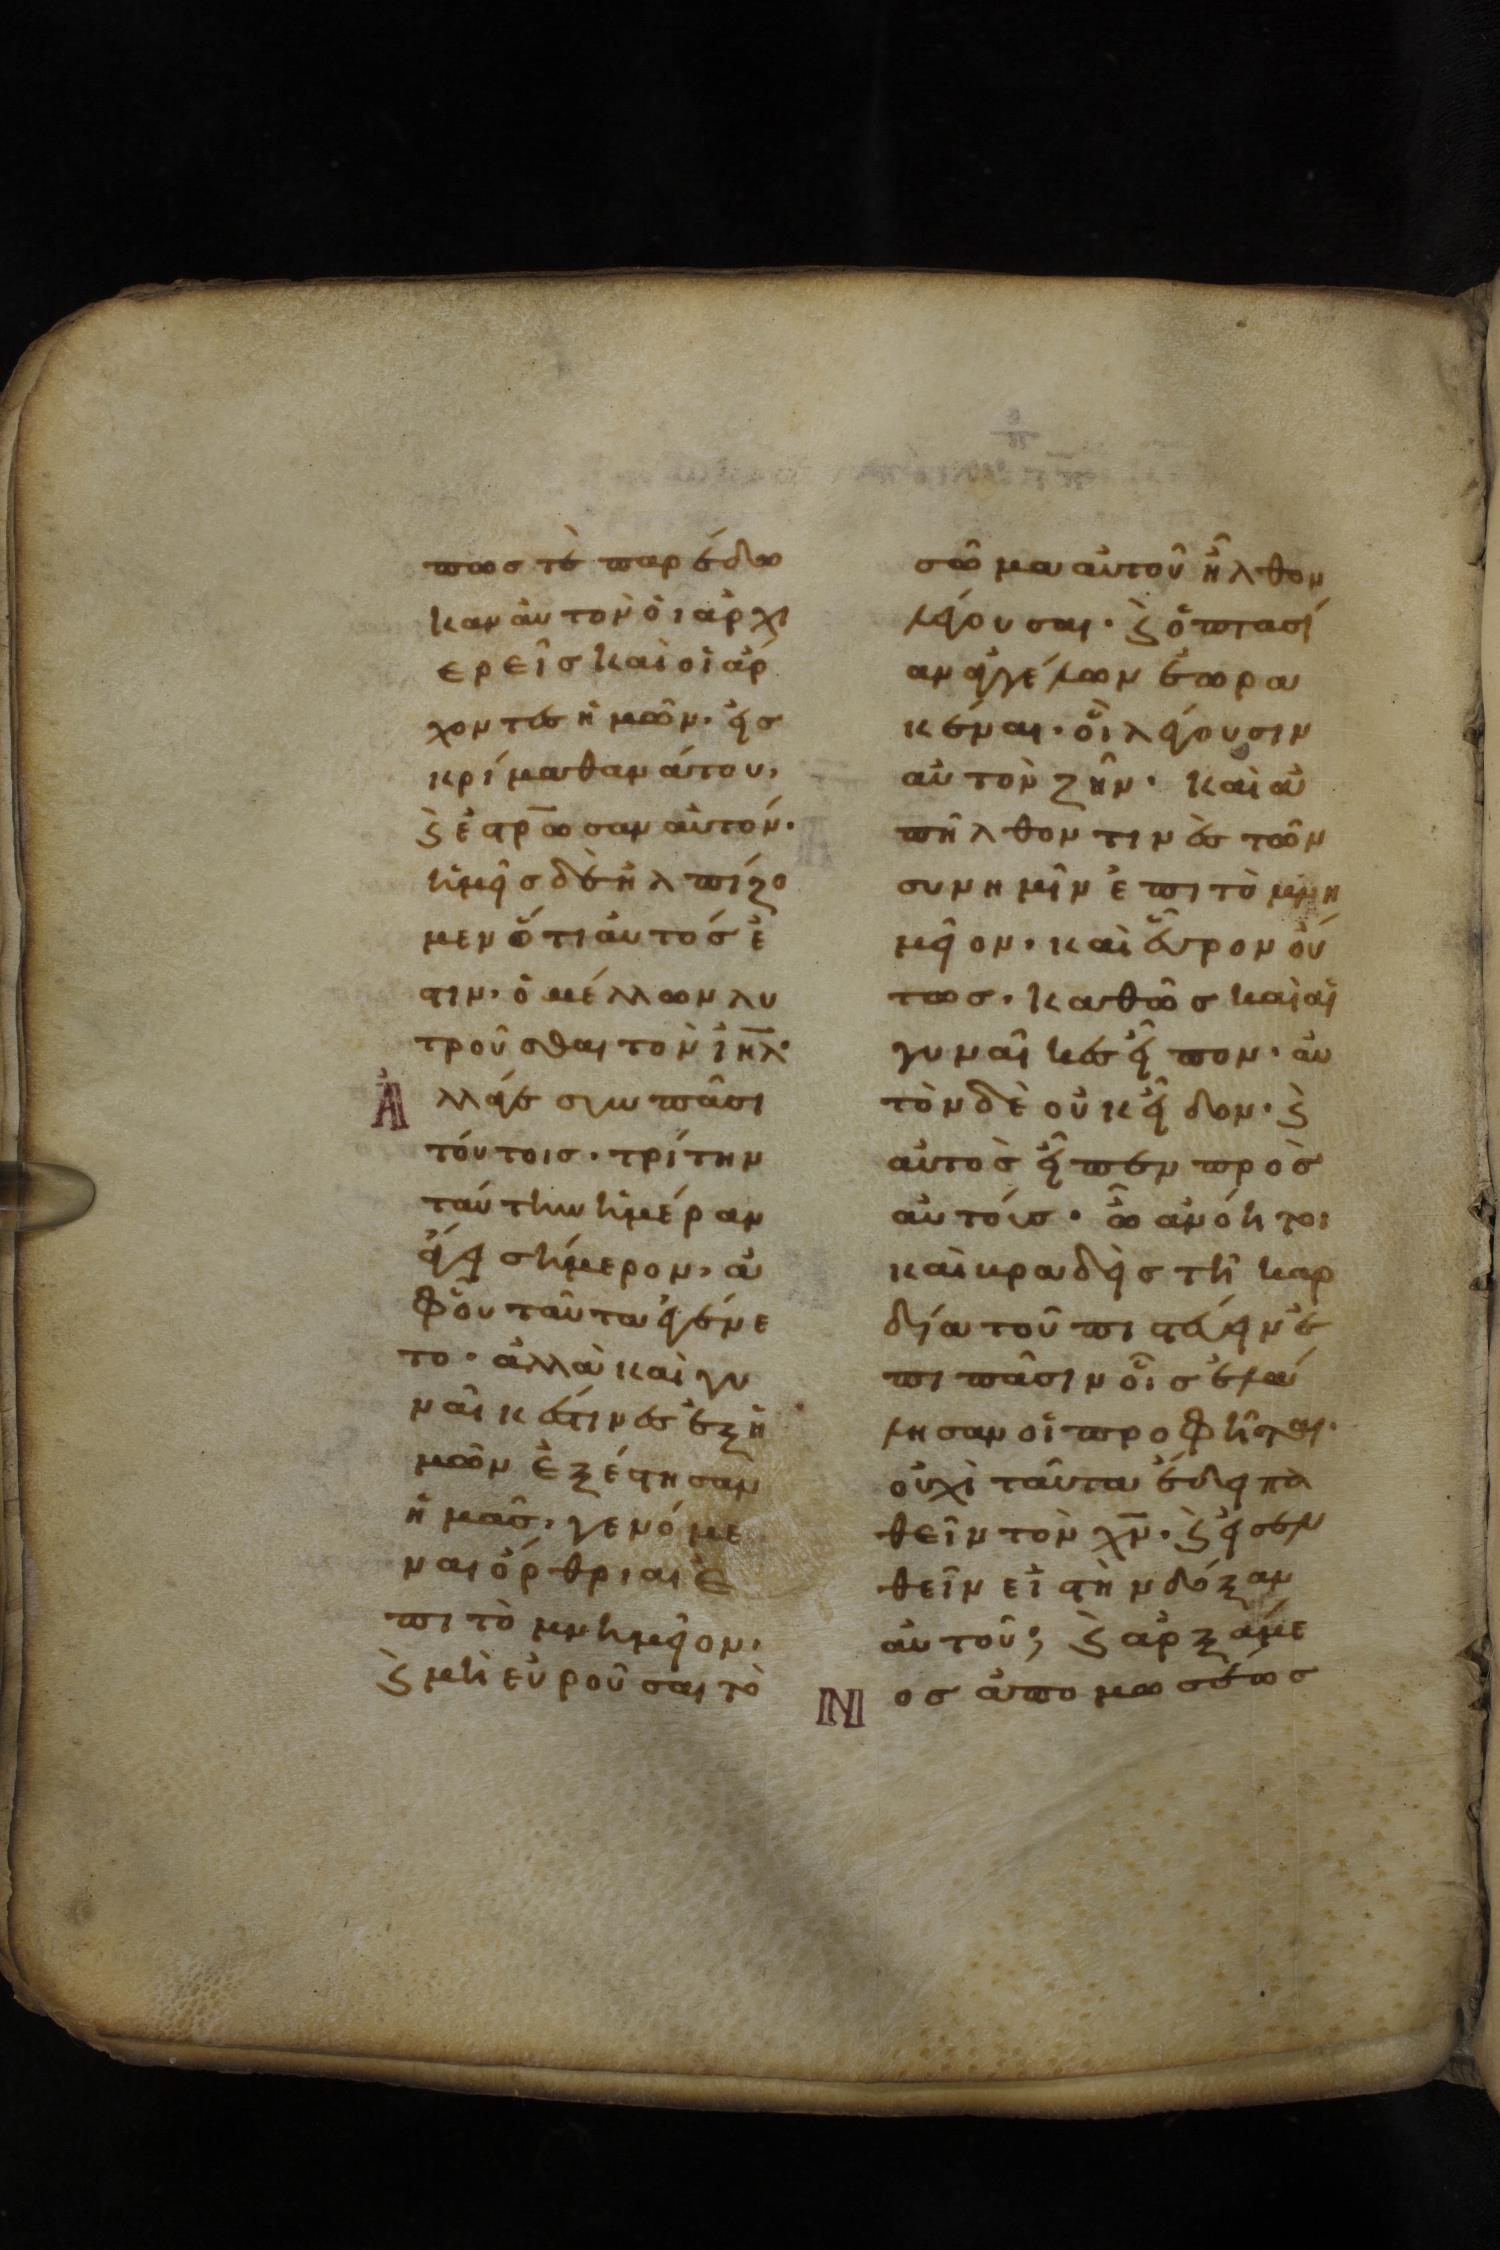 πωστε παρέδω
καν ἀυτὸν ὁι ἀρχι
ερεῖς καὶ οἱ ἄρ
χοντες ἡμῶν. εἰς
κρίμα θανάτου,
ϗ ἐσρ̅ωσαν αὐτόν.
ἡμεῖς δὲ ἠλπίζο
μεν ὅτι ἀυτός ἐ
στιν. ὁ μέλλων λυ
τροῦσθαι τὸν ἰη̅λ.
Ἀλλάγε σὺν πᾶσι
τόυτοις. τρίτην
ταύτην ἡμέραν
ἄγει σήμερον, ἀ
φ’ οὗ ταῦτα ἐγένε
το. ἀλλὰ καὶ γυ
ναῖκές τινες ἐξ ἡ
μῶν ἐξέστησαν
ἡμᾶς, γενόμε
ναι ὄρθριαι ἐ
πι τὸ μνημεῖον,
ϗ μὴ εὑροῦσαι τὸ
σῶμα αὐτοῦ ἦλθον
λέγουσαι. ϗ ὀπτασί
αν ἀγγέλων ἑωρα
κέναι. οἳ λέγουσιν
αὐτὸν ζῆν. καὶ ἀ
πῆλθον τινὲς τῶν
συν ημῖν ἐπι τὸ μνη
μεῖον. καὶ εὗρον ὅυ
τως. καθῶς καὶ αἱ
γυναῖκες εἶπον. ἀυ
τὸν δὲ οὐκ εἶδον. ϗ
αὐτὸς εἶπεν πρὸς
αὐτόυς. ὦ ἀνόητοι
καὶ βραδεῖς τῆ καρ
δία τοῦ πιστέυειν ἐ
πι πᾶσιν οἷς ἐλά
λησαν οἱ προφῆται.
οὐχὶ ταῦτα ἔδει πα
θεῖν τὸν χν̅. ϗ εἰσελ
θεῖν εἰ στὴν δόξαν
αὐτοῦ; ϗ ἀρξάμε
Νος ἀπο μωσέως